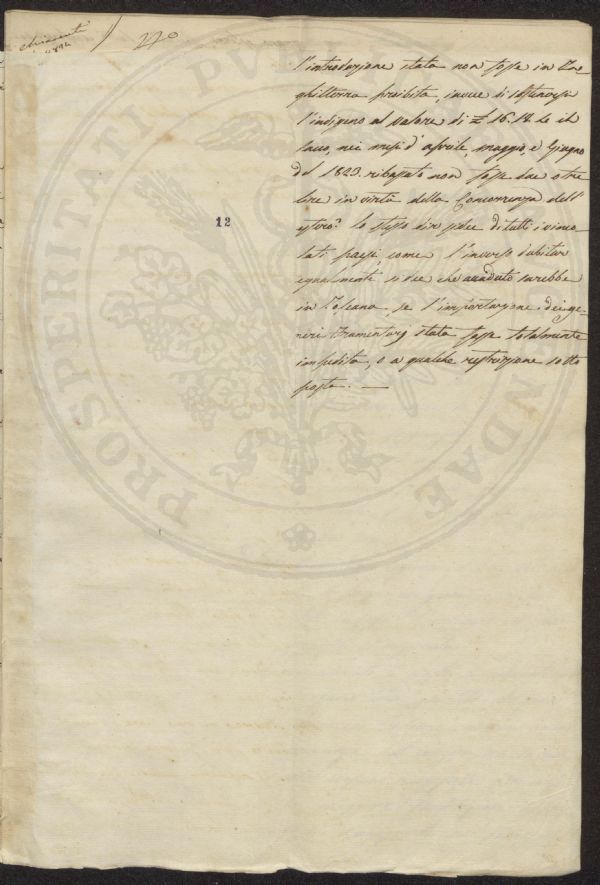 270
l'introduzione stata non fosse in In=
ghilterra proibita, invece di ostenersi
l'indigeno al valore di £ 16.18. Le il
sacco, nei mesi d'aprile, maggio, e Giugno
del 1823. ribassato non fosse due o tre
lire in virtù della Concorrenza dell'
estero? lo stesso dir si dee di tutti i vinco=
lati paesi, come l'inverso dubitar
egualmente si dee che accaduto sarebbe
in Toscana, se l'importazione dei ge=
neri frumentarj stata fosse totalmente
impedita, o a qualche restrizione sotto
posta. —
12
PROSPERITATI PVBLICAE